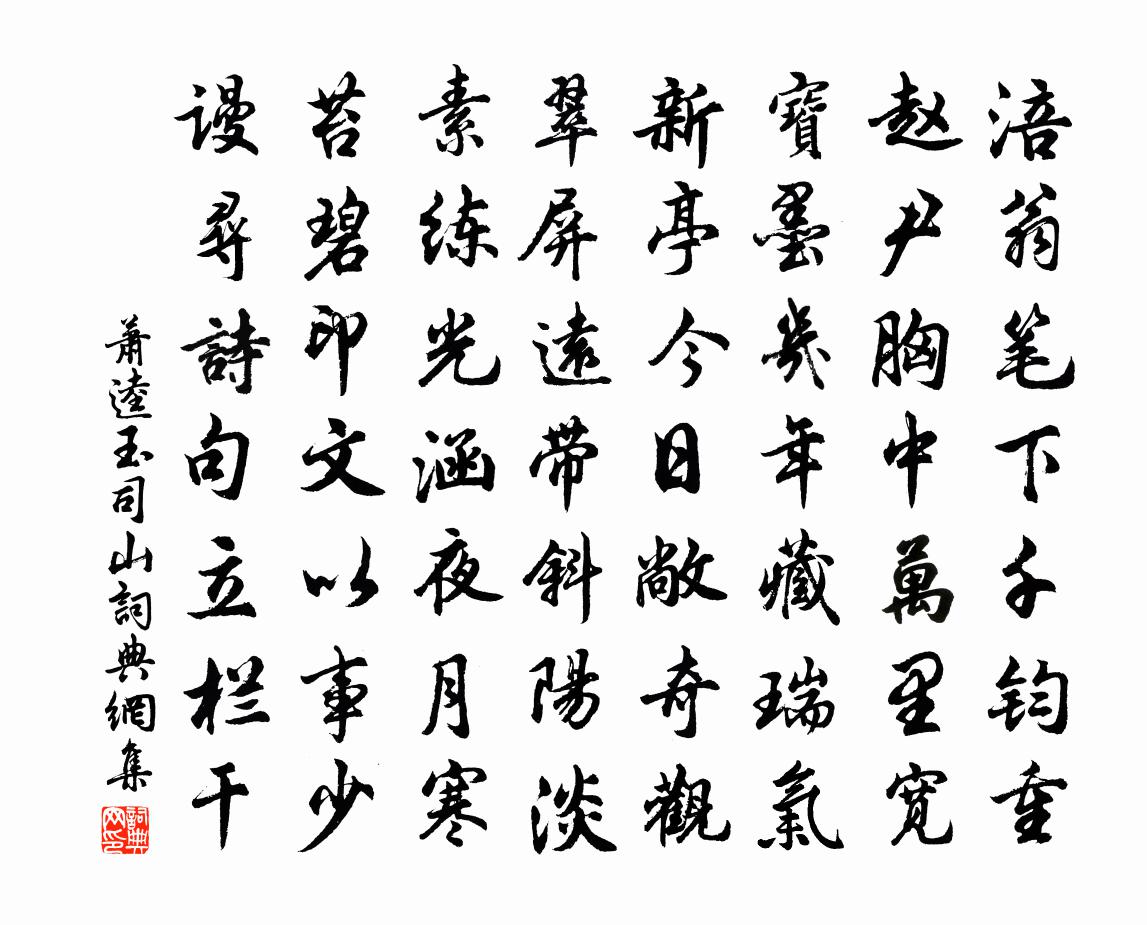 涪翁笔下千钧重
赵尹胸中萬里宽
寶墨幾年藏瑞氣
新亭今日敞奇觀
翠屏遠带斜陽淡
素练光涵夜月寒
苔碧印文以事少
谩尋詩句立栏干
萧逵玉司山詞典網集
詞典网印